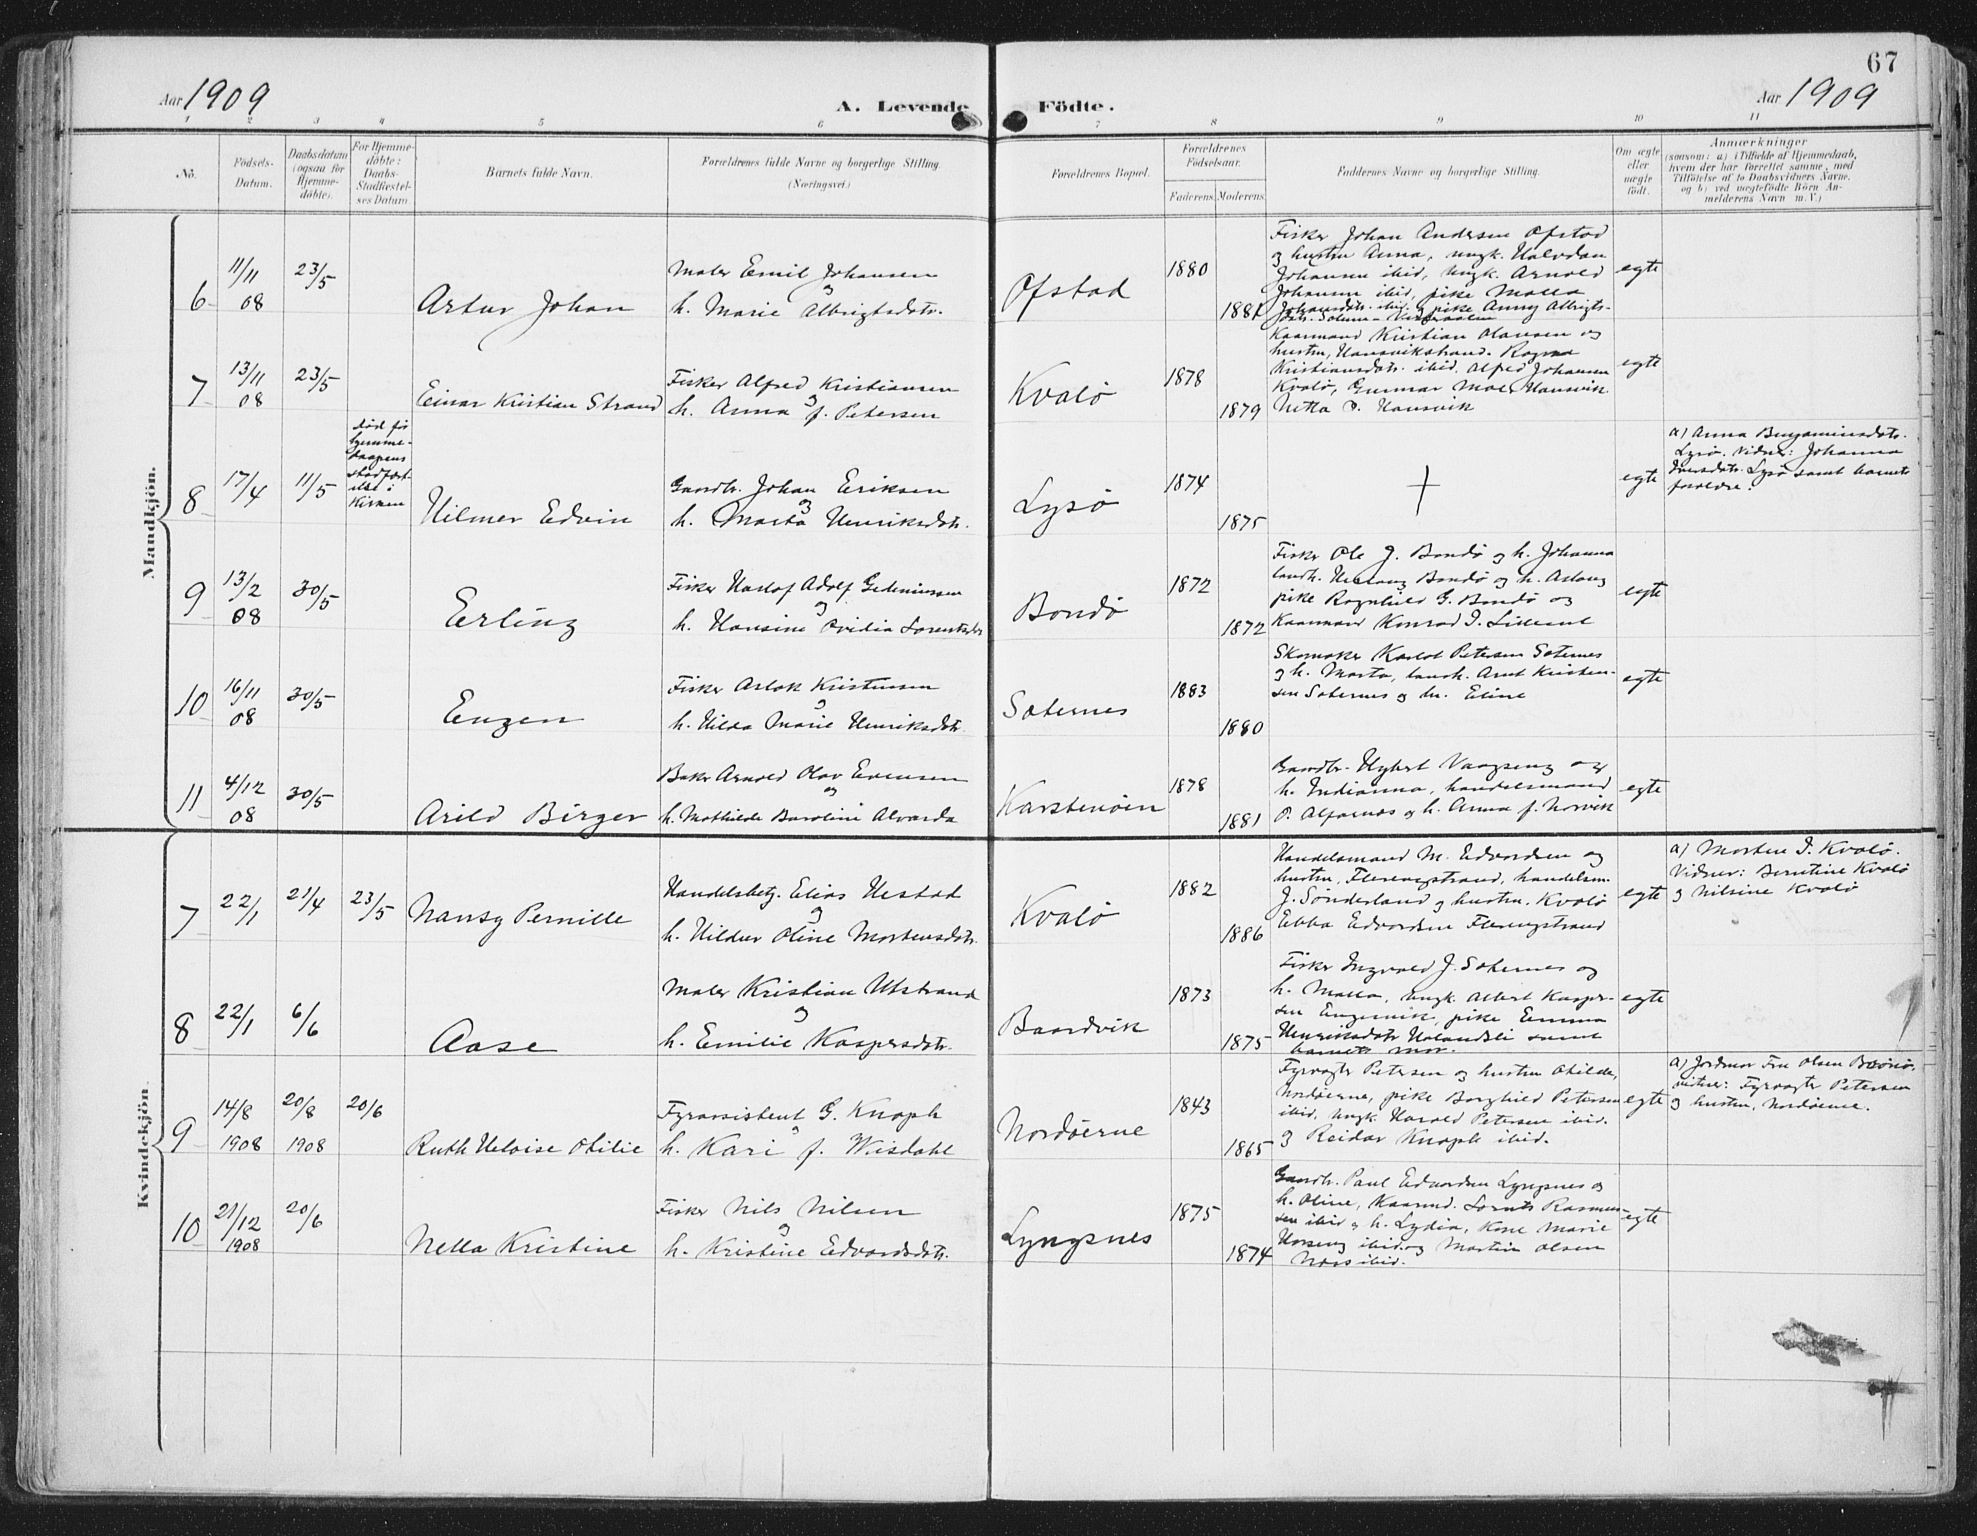 67
Aar 1909
A. Levende Födte.
Aar 1909
1 2 3 4 5 6 7 8 9 10 11
No.
Födsels-Datum.
Daabsdatum (ogsaa for Hjemme-döbte).
For Hjemme-döbte: Daabs-Stadfæstel-ses Datum
Barnets fulde Navn.
Forældrenes fulde Navne og borgerlige Stilling.
(Næringsvei.)
Forældrenes Bopæl.
Forældrenes Födselsaar.
Faderens. Moderens.
Faddernes Navne og borgerlige Stilling.
Om ægte eller uægte födt.
Anmærkninger
(saasom: a) i Tilfælde af Hjemmedaab, hvem der har forrettet samme, med Tilföielse af to Daabsvidners Navne. og b) ved uægtefödte Börn An-melderens Navn m. V.)
Mandkjön.
6 11/11 08 23/5
Artur Johan
Maler Emil Johansen
og
h. Marie Albrigtsdtr.
Ofstad
1880
1881
Fisker Johan Andersen Ofstad
og hustru Anna, ungk. Halvdan
Johansen ibid, ungk. Arnold
Johansen ibid, pike Malla
Johansdtr. ibid. og pike Anny Albrigts-
egte
7 13/11 08 23/5
Einar Kristian Strand
Fisker Alfred Kristiansen
og
h. Anna f. Petersen
Kvalö
1878
1879
Kaarmand Kristian Olausen og
hustru, Hansvikstrand. Ragna
Kristiansdtr. ibid, Alfred Johansen
Kvalö, Gunnar Moe Hansvik
Netta O. Hansvik
egte
8 17/4 11/5
död för
hjemme-
daapens
stadfæst-
else i
Kirken
Hilmer Edvin
Gaardbr. Johan Eriksen
og
h. Marta Henriksdtr.
Lysö
1874
1875
+
egte
a) Anna Benjaminsdtr.
Lysö. Vidner: Johanna
Lysö samt barnets
forældre.
9 13/2 08 30/5
Erling
Fisker Hartof Adolf
og
h. Hansine Ovidia Lorentsdtr
Bondö
1872
1872
Fisker Ole J. Bondö og h. Johanna
Bondö og h. Aslaug
pike Ragnhild G. Bondö og
Kaarmand Konrad I.
egte
10 16/11 08 30/5
Eugen
Fisker Aslak Kristensen
og
h. Hilda Marie Henriksdtr
Saternes
1883
1880
Skomaker Karlot Petersen Saternes
og h. Marta, landh. Arnt Kristen-
sen Saternes og h. Eline
egte
11 4/12 08 30/5
Arild Birger
Baker Arnold Olav Evensen
og
h. Mathilde Baroline Alvarda
Karstenöien
1878
1881
Gaardbr. Hybert Vaagseng og
h. Indianna, handelsmand
P. Alfarnæs og h. Anna f. Norvik
egte
Kvindekjön
7 22/1 21/4 23/5
Nansy Pernille
Handelsbetj. Elias Hestad
og
h. Hildur Oline Mortensdtr.
Kvalö
1882
1886
Handelsmand M. Edvardsen og
hustru, Flerengstrand, handelsm.
J. Sönderland og hustru, Kvalö
Ebba Edvardsen Flerengstrand
egte
a) Morten I. Kvalö.
Vidner: Berntine Kvalö
og Nilsine Kvalö
8 22/1 6/6
Aase
Maler Kristian Utstrand
og
h. Emilie Kaspersdtr.
Baardvik
1873
1875
Fisker Ingvald J. Saternes og
h. Malla, ungk. Albert Kasper-
sen Engenvik, pike Emma
Henriksdtr Halandsli samt
barnets mor.
egte
9 14/8 1908 20/8 1908 20/6
Ruth Heloise Otilie
Fyrassistent G. Knoph
og
h. Kari f. Wisdahl
Nordöerne
1843
1865
Fyrvogter Petersen og hustru Otilde,
Nordöerne, pike Borghild Petersen
ibid, ungk Harald Petersen ibid.
og Reidar Knoph ibid.
egte
a) Jordmor Fru Olsen
vitner: Fyrvogter Petersen
og hustru, Nordöerne.
10 21/12 1908 20/6
Nella Kristine
Fisker Nils Nilsen
og
h. Kristine Edvardsdtr.
Lyngsnes
1875
1874
Gaardbr. Paul Edvardsen Lyngsnes og
h. Oline, Kaarmd. Lornts Rasmus-
sen ibid og h. Lydia, Kone Marie
ibid. og Martin Olsen
ibid.
egte